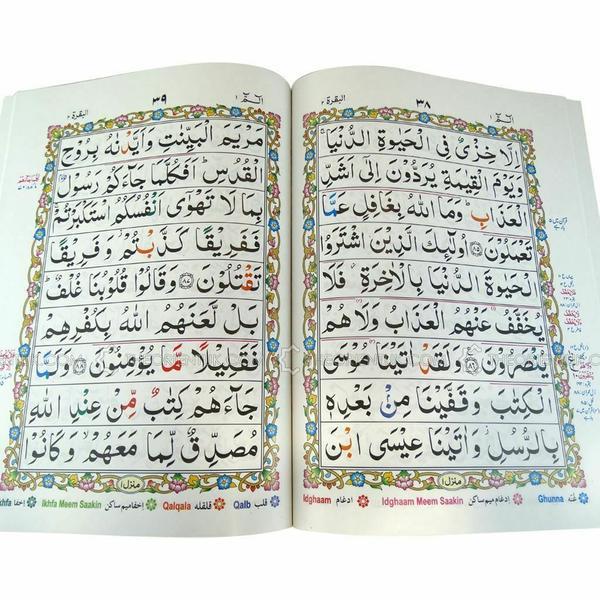 البقرة ٢
٣٨
الٓمّٓ ١
اِلَّا خِزۡىٌ فِى الۡحَيٰوةِ الدُّنۡيَا ۚ
وَيَوۡمَ الۡقِيٰمَةِ يُرَدُّوۡنَ اِلٰٓى اَشَدِّ
الۡعَذَابِ ؕ وَمَا اللّٰهُ بِغَافِلٍ عَمَّا
تَعۡمَلُوۡنَ ﴿۸۵﴾ اُولٰٓئِكَ الَّذِيۡنَ اشۡتَرَوُا
الۡحَيٰوةَ الدُّنۡيَا بِالۡاٰخِرَةِ ۫ فَلَا
يُخَفَّفُ عَنۡهُمُ الۡعَذَابُ وَلَا هُمۡ
يُنۡصَرُوۡنَ ﴿۸۶﴾ وَلَقَدۡ اٰتَيۡنَا مُوۡسَى
الۡكِتٰبَ وَقَفَّيۡنَا مِنۡۢ بَعۡدِهٖ
بِالرُّسُلِ ۫ وَاٰتَيۡنَا عِيۡسَى ابۡنَ
منزل ١
البقرة ٢
٣٩
الٓمّٓ ١
مَرۡيَمَ الۡبَيِّنٰتِ وَاَيَّدۡنٰهُ بِرُوۡحِ
الۡقُدُسِ ؕ اَفَكُلَّمَا جَآءَكُمۡ رَسُوۡلٌۢ
بِمَا لَا تَهۡوٰٓى اَنۡفُسُكُمُ اسۡتَكۡبَرۡتُمۡ ۚ
فَفَرِيۡقًا كَذَّبۡتُمۡ ۫ وَفَرِيۡقًا
تَقۡتُلُوۡنَ ﴿۸۷﴾ وَقَالُوۡا قُلُوۡبُنَا غُلۡفٌ ؕ
بَلۡ لَّعَنَهُمُ اللّٰهُ بِكُفۡرِهِمۡ
فَقَلِيۡلًا مَّا يُؤۡمِنُوۡنَ ﴿۸۸﴾ وَلَمَّا
جَآءَهُمۡ كِتٰبٌ مِّنۡ عِنۡدِ اللّٰهِ
مُصَدِّقٌ لِّمَا مَعَهُمۡ ۙ وَكَانُوۡا
منزل ١
Ghunna غنه Idghaam Meem Saakin ادغام ميم ساكن Idghaam ادغام
Qalb قلب Qalqala قلقله Ikhfa Meem Saakin اخفا ميم ساكن اخفا